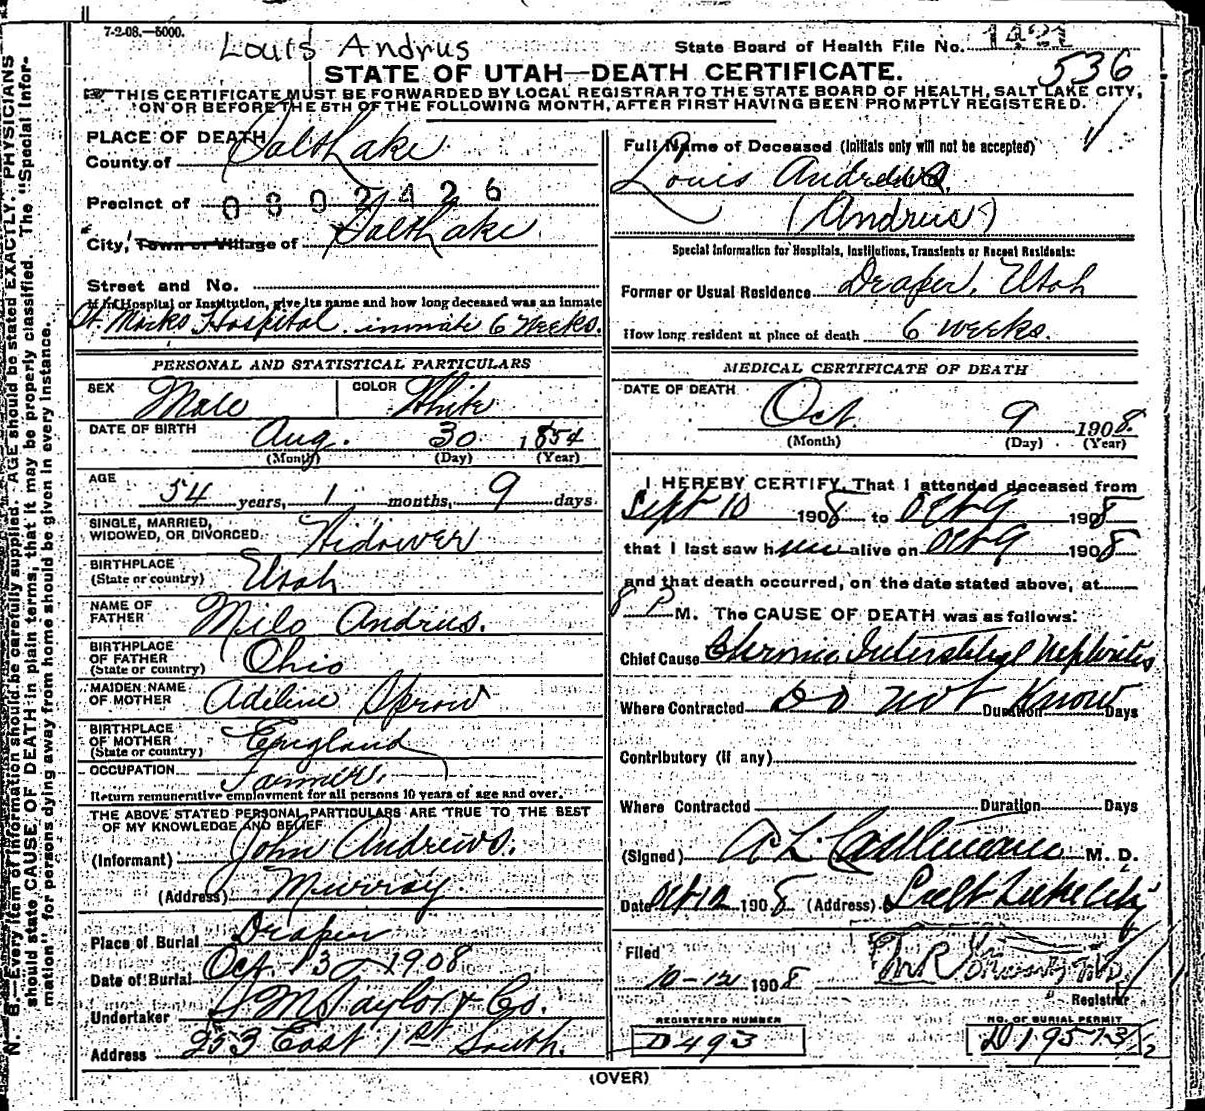 7-2-08.—5000.
Louis Andrus
State Board of Health File No. 1421
536
STATE OF UTAH—DEATH CERTIFICATE.
THIS CERTIFICATE MUST BE FORWARDED BY LOCAL REGISTRAR TO THE STATE BOARD OF HEALTH, SALT LAKE CITY,
ON OR BEFORE THE 5TH OF THE FOLLOWING MONTH, AFTER FIRST HAVING BEEN PROMPTLY REGISTERED.
PLACE OF DEATH
County of Salt Lake
Precinct of 0802426
City, Town or Village of Salt Lake
Street and No.
If in Hospital or Institution, give its name and how long deceased was an inmate
St. Marks Hospital. inmate 6 Weeks.
PERSONAL AND STATISTICAL PARTICULARS
SEX Male COLOR White
DATE OF BIRTH Aug. 30 1854
(Month) (Day) (Year)
AGE 54 years, 1 months, 9 days.
SINGLE, MARRIED,
WIDOWED, OR DIVORCED Widower
BIRTHPLACE
(State or country) Utah
NAME OF
FATHER Milo Andrus.
BIRTHPLACE
OF FATHER
(State or country) Ohio
MAIDEN NAME
OF MOTHER Adeline Sprow
BIRTHPLACE
OF MOTHER
(State or country) England
OCCUPATION Farmer.
Return remunerative employment for all persons 10 years of age and over.
THE ABOVE STATED PERSONAL PARTICULARS ARE TRUE TO THE BEST
OF MY KNOWLEDGE AND BELIEF
(Informant) John Andrews.
(Address) Murray.
Place of Burial Draper
Date of Burial Oct. 13 1908
Undertaker S M Taylor & Co.
Address 253 East 1st South.
Full Name of Deceased (Initials only will not be accepted)
Louis Andrews.
(Andrus)
Special Information for Hospitals, Institutions, Transients or Recent Residents:
Former or Usual Residence Draper, Utah
How long resident at place of death 6 weeks.
MEDICAL CERTIFICATE OF DEATH
DATE OF DEATH
Oct. 9 1908.
(Month) (Day) (Year)
I HEREBY CERTIFY, That I attended deceased from
Sept 10 1908 to Oct 9 1908
that I last saw him alive on Oct 9 1908
and that death occurred, on the date stated above, at
8 P M. The CAUSE OF DEATH was as follows:
Chief Cause Chronic Interstitial Nephritis
Where Contracted Do not Know Duration Days
Contributory (if any)
Where Contracted Duration Days
(Signed) A L Castleman M. D.
Date Oct 12 1908 (Address) Salt Lake City
Filed
10-12 1908
Registrar
REGISTERED NUMBER
D493
NO. OF BURIAL PERMIT
D19573
(OVER)
N. B.—Every item of information should be carefully supplied. AGE should be stated EXACTLY. PHYSICIANS
should state CAUSE OF DEATH in plain terms, that it may be properly classified. The "Special Infor-
mation" for persons dying away from home should be given in every instance.